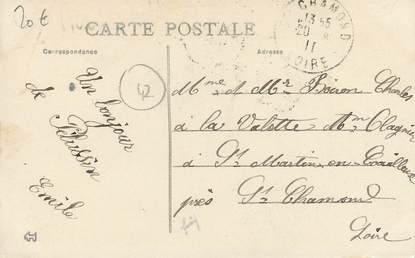 20 €
CARTE POSTALE
CHAMOND
13 45
20
11
LOIRE
Correspondance
Adresse
42
Un bonjour
de Pélussin
Emile
Mme et Mr Poiron Charles
à la Valette Mon Olagnier
à St Martin-en-Coailleux
près St Chamond
Loire